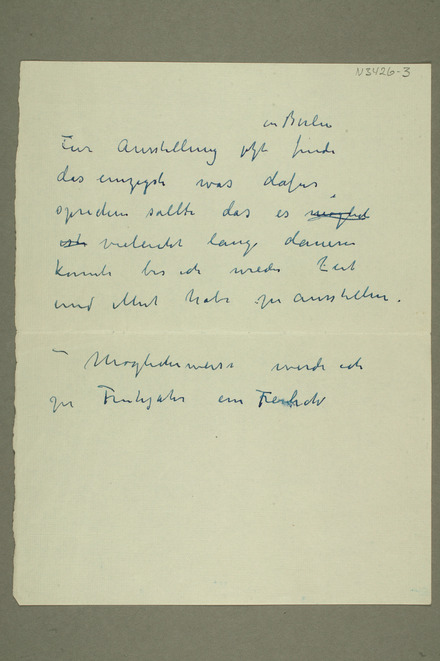 N3426-3
in Berlin
Zur Ausstellung jetzt finde
das einzigste was dafur
sprechen sollte das es möglich
ist vieleicht lange dauern
konnte bis ich wieder Zeit
und Mut habe zu ausstellen.
— Moglicherweise werde ich
zu Fruhjahr ein